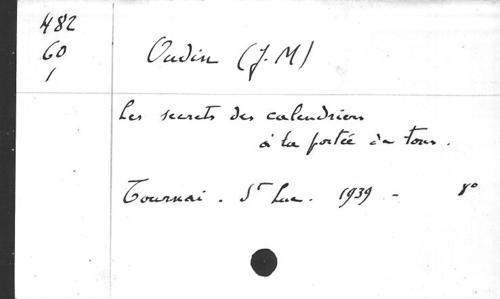 482
60
1
Oudin (J. M)
Les secrets des calendriers
à la portée de tous.
Tournai. St Luc. 1939 - 8°